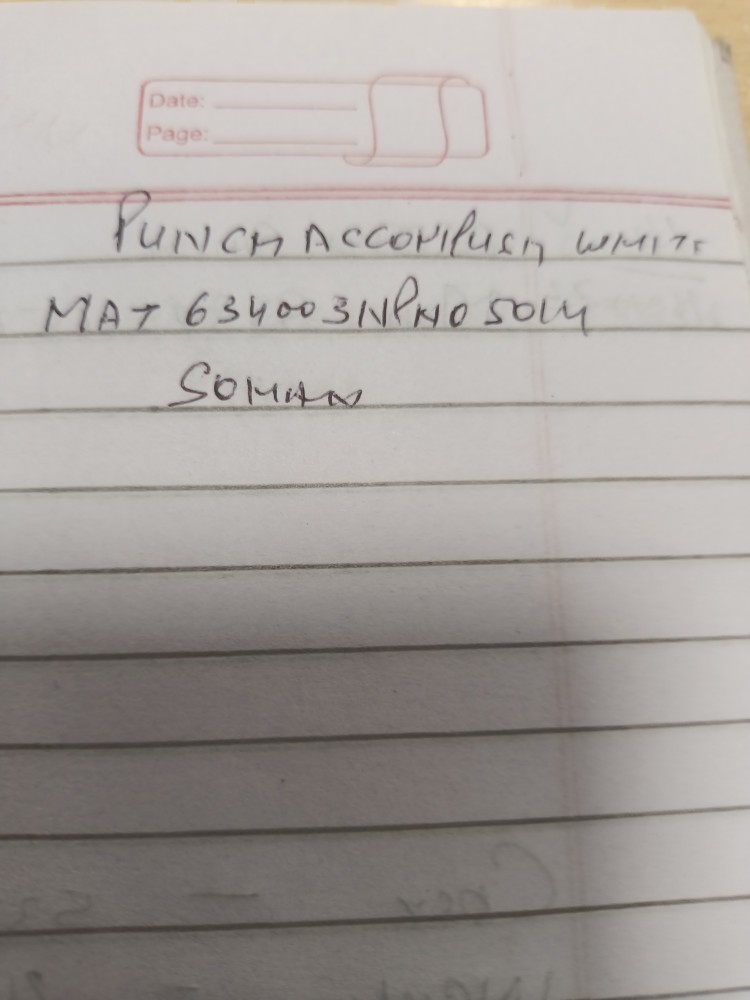 Date:
Page:
PUNCH ACCOMPLISH WHITE
MAT 634003NPH05014
SOHAN